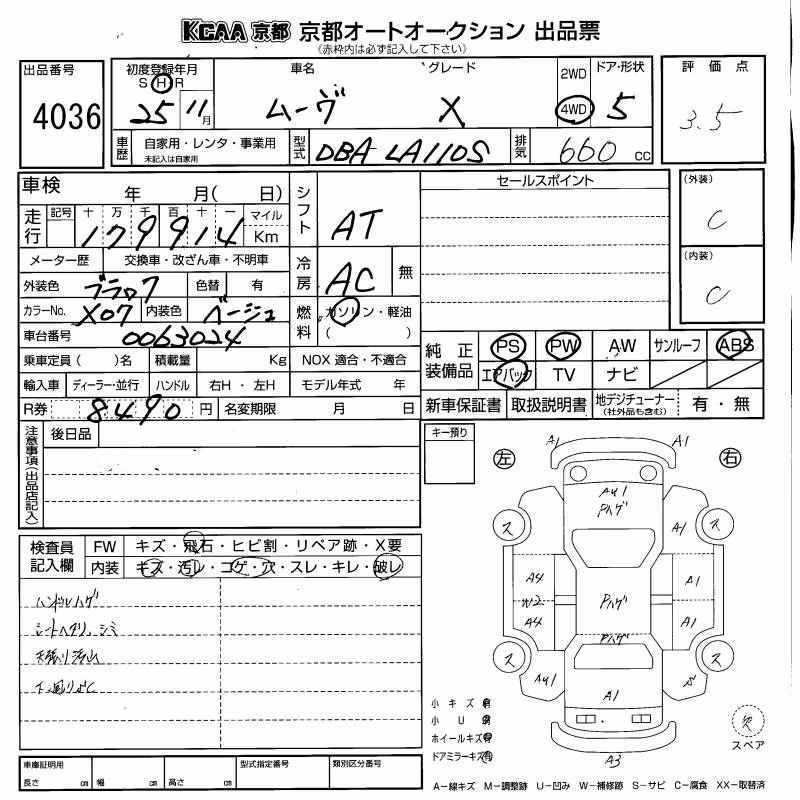 KCAA 京都 京都オートオークション 出品票
(赤枠内は必ず記入して下さい)
出品番号
4036
初度登録年月
S H R
25 11月
車名
ムーヴ
グレード
X
2WD
4WD
ドア・形状
5
評価点
3.5
車歴
自家用・レンタ・事業用
未記入は自家用
型式
DBA-LA110S
排気
660 cc
車検 年 月( 日)
走行
記号 十 万 千 百 十 一
179914
マイル
Km
シフト
AT
セールスポイント
(外装)
C
(内装)
C
メーター歴 交換車・改ざん車・不明車
外装色 ブラック 色替 有
冷房
AC 無
カラーNo. X07 内装色 ベージュ
燃料
ガソリン・軽油
( )
車台番号 0063024
乗車定員 ( )名 積載量 Kg NOX 適合・不適合
輸入車 ディーラー・並行 ハンドル 右H・左H モデル年式 年
R券 8490 円 名変期限 月 日
純正装備品
PS PW AW サンルーフ ABS
エアバック TV ナビ
新車保証書 取扱説明書 地デジチューナー
(社外品も含む)
有・無
注意事項(出品店記入)
後日品
キー預り
検査員記入欄
FW キズ・飛石・ヒビ割・リペア跡・X要
内装 キズ・汚レ・コゲ・穴・スレ・キレ・破レ
ハンドルハゲ
シートヘタリ、シミ
天張り汚れ
下廻りサビ
左 右
A1 A1
AU1
Pハゲ
ス ス
A1
A4
W2
A4
Pハゲ
A1
A1
Pハゲ
ス ス
AU1
A1
A3
小キズ有
小U有
ホイールキズ有
ドアミラーキズ有
欠
スペア
車庫証明用
長さ cm 幅 cm 高さ cm
型式指定番号
類別区分番号
A−線キズ M−調整跡 U−凹み W−補修跡 S−サビ C−腐食 XX−取替済